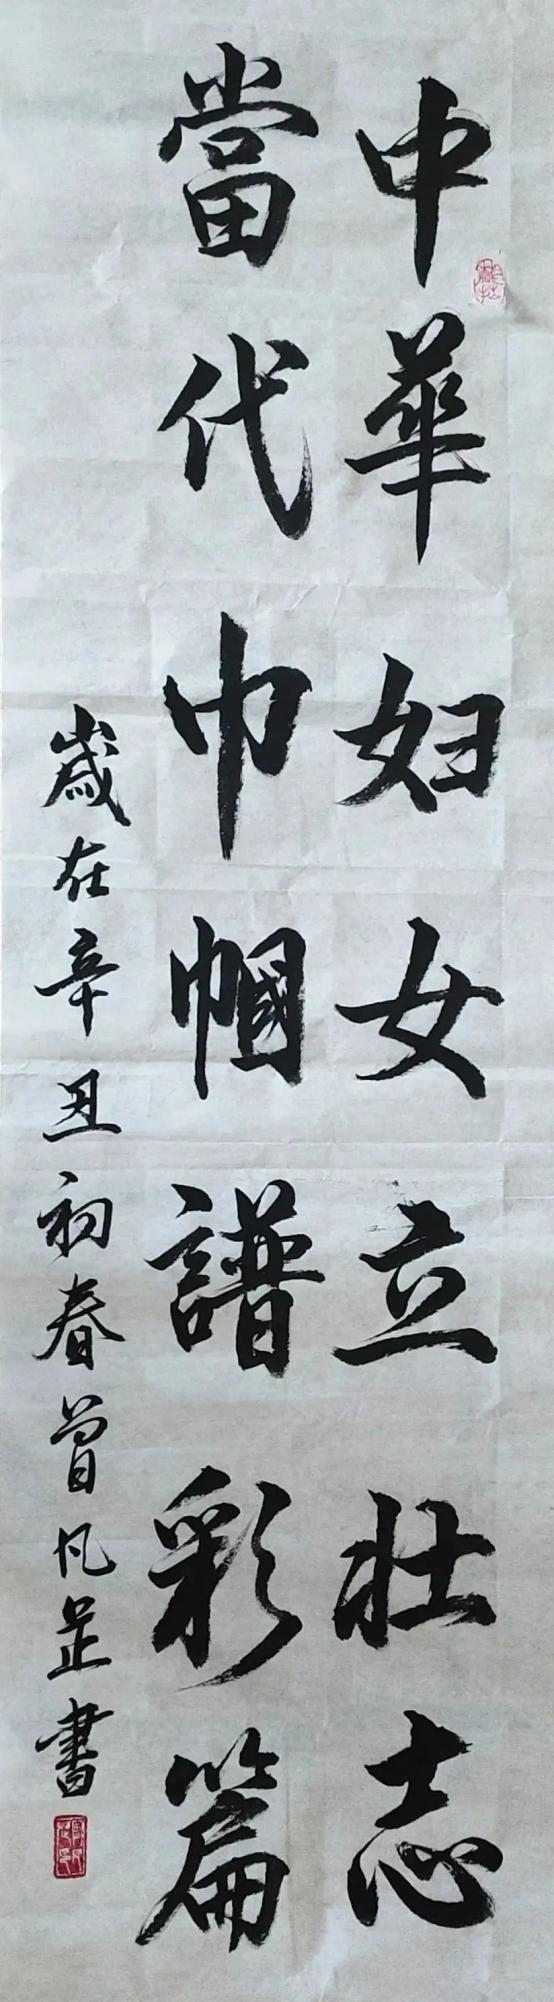 中華妇女立壮志
當代巾帼譜彩篇
歲在辛丑初春曾凡芷書